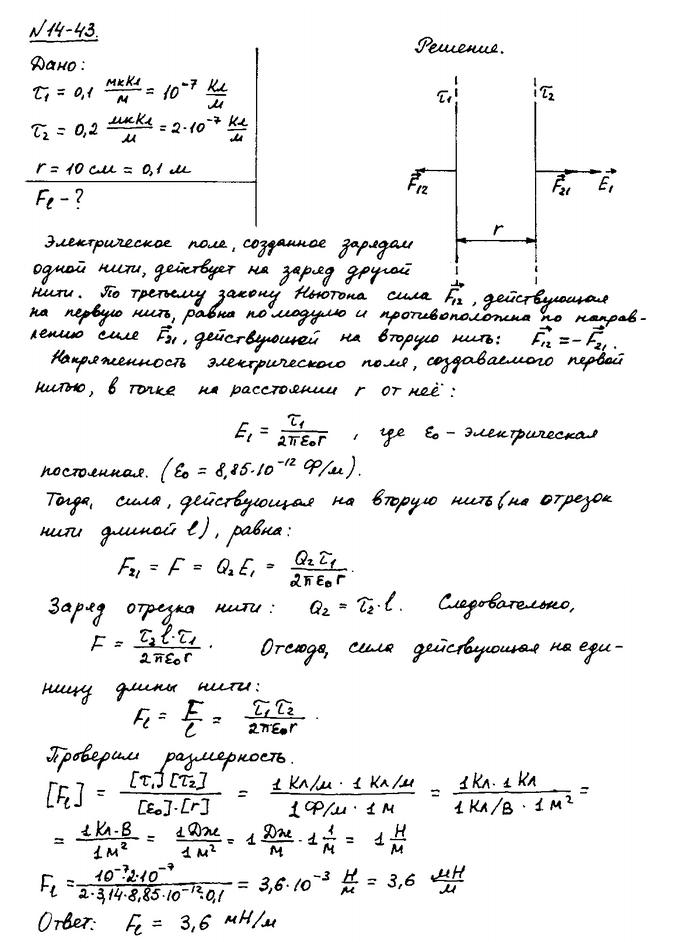 №14-43.
Решение.
Дано:
τ₁ = 0,1 мкКл/м = 10⁻⁷ Кл/м
τ₂ = 0,2 мкКл/м = 2·10⁻⁷ Кл/м
r = 10 см = 0,1 м
Fₗ - ?
τ₁ τ₂
F⃗₁₂ F⃗₂₁ E⃗₁
r
Электрическое поле, созданное зарядом
одной нити, действует на заряд другой
нити. По третьему закону Ньютона сила F⃗₁₂, действующая
на первую нить, равна по модулю и противоположна по направ-
лению силе F⃗₂₁, действующей на вторую нить: F⃗₁₂ = -F⃗₂₁.
Напряженность электрического поля, создаваемого первой
нитью, в точке на расстоянии r от неё:
E₁ = τ₁/2πε₀r , где ε₀ - электрическая
постоянная. (ε₀ = 8,85·10⁻¹² Ф/м).
Тогда, сила, действующая на вторую нить (на отрезок
нити длиной l), равна:
F₂₁ = F = Q₂E₁ = Q₂τ₁/2πε₀r.
Заряд отрезка нити: Q₂ = τ₂·l. Следовательно,
F = τ₂l·τ₁/2πε₀r. Отсюда, сила действующая на еди-
ницу длины нити:
Fₗ = F/l = τ₁τ₂/2πε₀r.
Проверим размерность.
[Fₗ] = [τ₁][τ₂]/[ε₀]·[r] = 1 Кл/м · 1 Кл/м / 1 Ф/м · 1 м = 1 Кл · 1 Кл / 1 Кл/В · 1 м² =
= 1 Кл·В/1 м² = 1 Дж/1 м² = 1 Дж/м · 1 1/м = 1 Н/м
Fₗ = 10⁻⁷·2·10⁻⁷/2·3,14·8,85·10⁻¹²·0,1 = 3,6·10⁻³ Н/м = 3,6 мН/м
Ответ: Fₗ = 3,6 мН/м